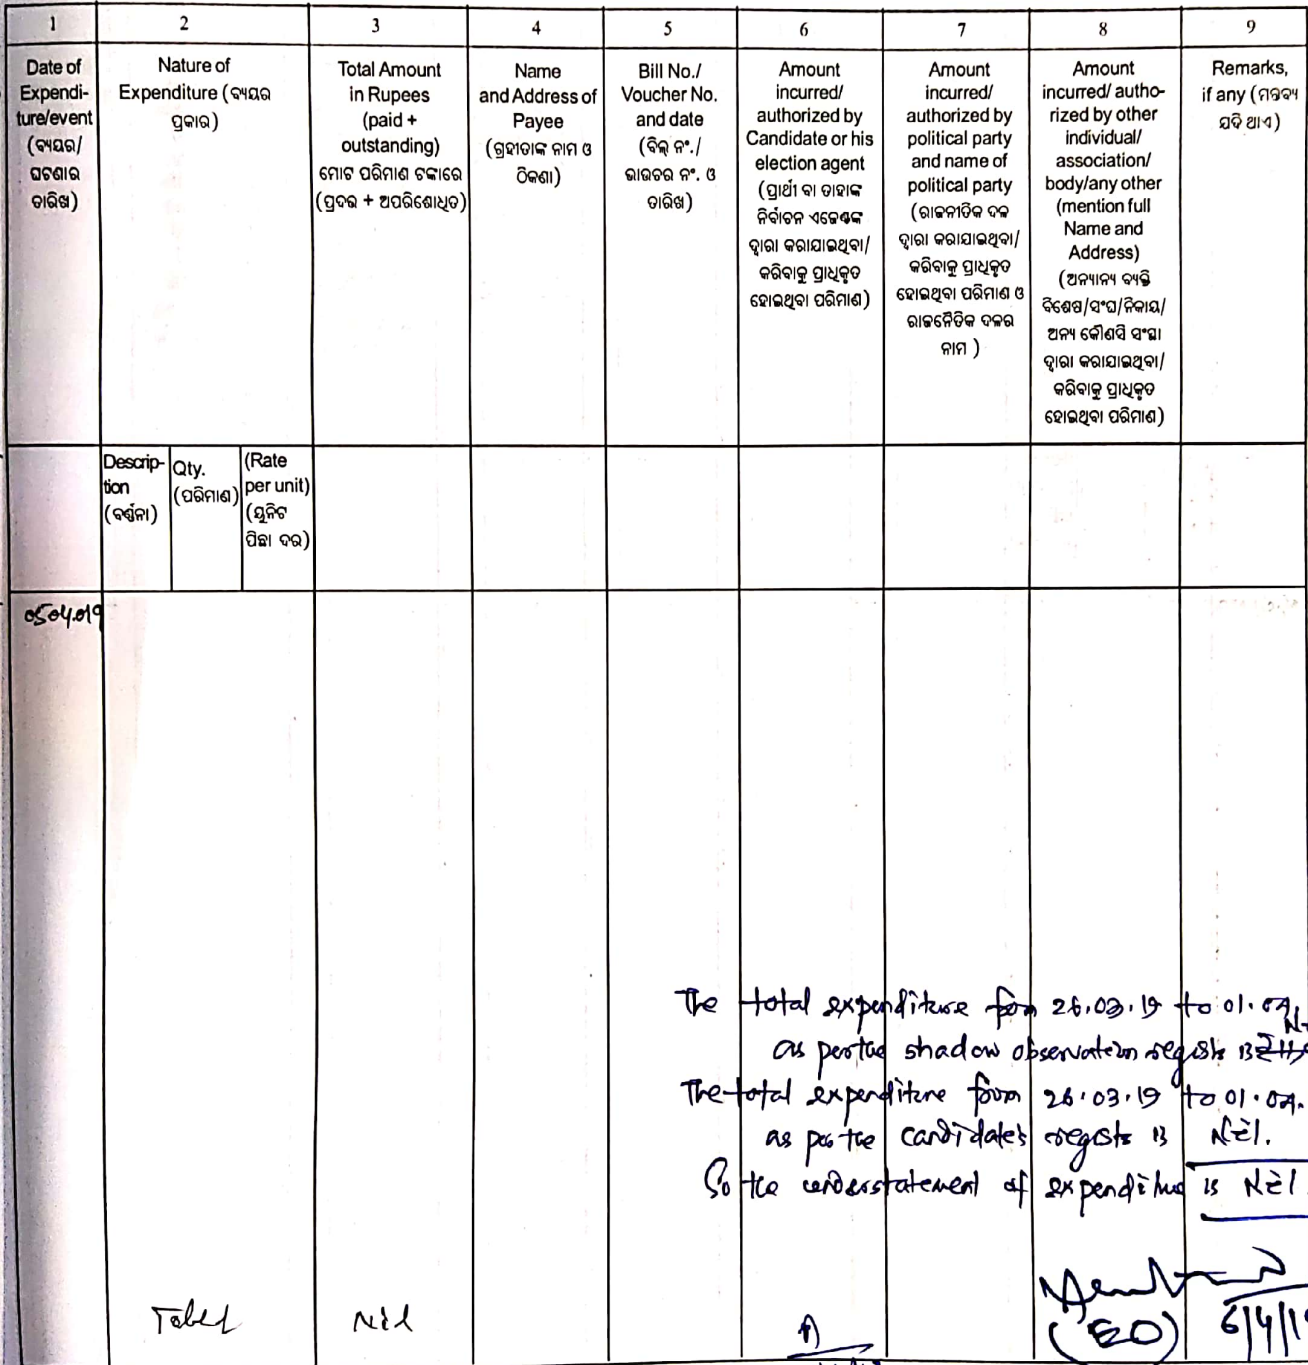 1 2 3 4 5 6 7 8 9
Date of
Expendi-
ture/event
(ବ୍ୟୟର/
ଘଟଣାର
ତାରିଖ)
Nature of
Expenditure (ବ୍ୟୟର
ପ୍ରକାର)
Total Amount
in Rupees
(paid +
outstanding)
ମୋଟ ପରିମାଣ ଟଙ୍କାରେ
(ପ୍ରଦତ୍ତ + ଅପରିଶୋଧିତ)
Name
and Address of
Payee
(ଗ୍ରହୀତାଙ୍କ ନାମ ଓ
ଠିକଣା)
Bill No./
Voucher No.
and date
(ବିଲ୍ ନଂ./
ଭାଉଚର ନଂ. ଓ
ତାରିଖ)
Amount
incurred/
authorized by
Candidate or his
election agent
(ପ୍ରାର୍ଥୀ ବା ତାହାଙ୍କ
ନିର୍ବାଚନ ଏଜେଣ୍ଟଙ୍କ
ଦ୍ୱାରା କରାଯାଇଥିବା/
କରିବାକୁ ପ୍ରାଧିକୃତ
ହୋଇଥିବା ପରିମାଣ)
Amount
incurred/
authorized by
political party
and name of
political party
(ରାଜନୀତିକ ଦଳ
ଦ୍ୱାରା କରାଯାଇଥିବା/
କରିବାକୁ ପ୍ରାଧିକୃତ
ହୋଇଥିବା ପରିମାଣ ଓ
ରାଜନୈତିକ ଦଳର
ନାମ )
Amount
incurred/ autho-
rized by other
individual/
association/
body/any other
(mention full
Name and
Address)
(ଅନ୍ୟାନ୍ୟ ବ୍ୟକ୍ତି
ବିଶେଷ/ସଂଘ/ନିକାୟ/
ଅନ୍ୟ କୌଣସି ସଂସ୍ଥା
ଦ୍ୱାରା କରାଯାଇଥିବା/
କରିବାକୁ ପ୍ରାଧିକୃତ
ହୋଇଥିବା ପରିମାଣ)
Remarks,
if any (ମନ୍ତବ୍ୟ
ଯଦି ଥାଏ)
Descrip-
tion
(ବର୍ଣ୍ଣନା)
Qty.
(ପରିମାଣ)
(Rate
per unit)
(ୟୁନିଟ
ପିଛା ଦର)
05.04.019
The total expenditure from 26.03.19 to 01.04.
as per the shadow observation register is
The total expenditure from 26.03.19 to 01.04.
as per the candidate's register is Nil.
So the understatement of expenditure is Nil.
Total Nil
(EO) 6/4/19